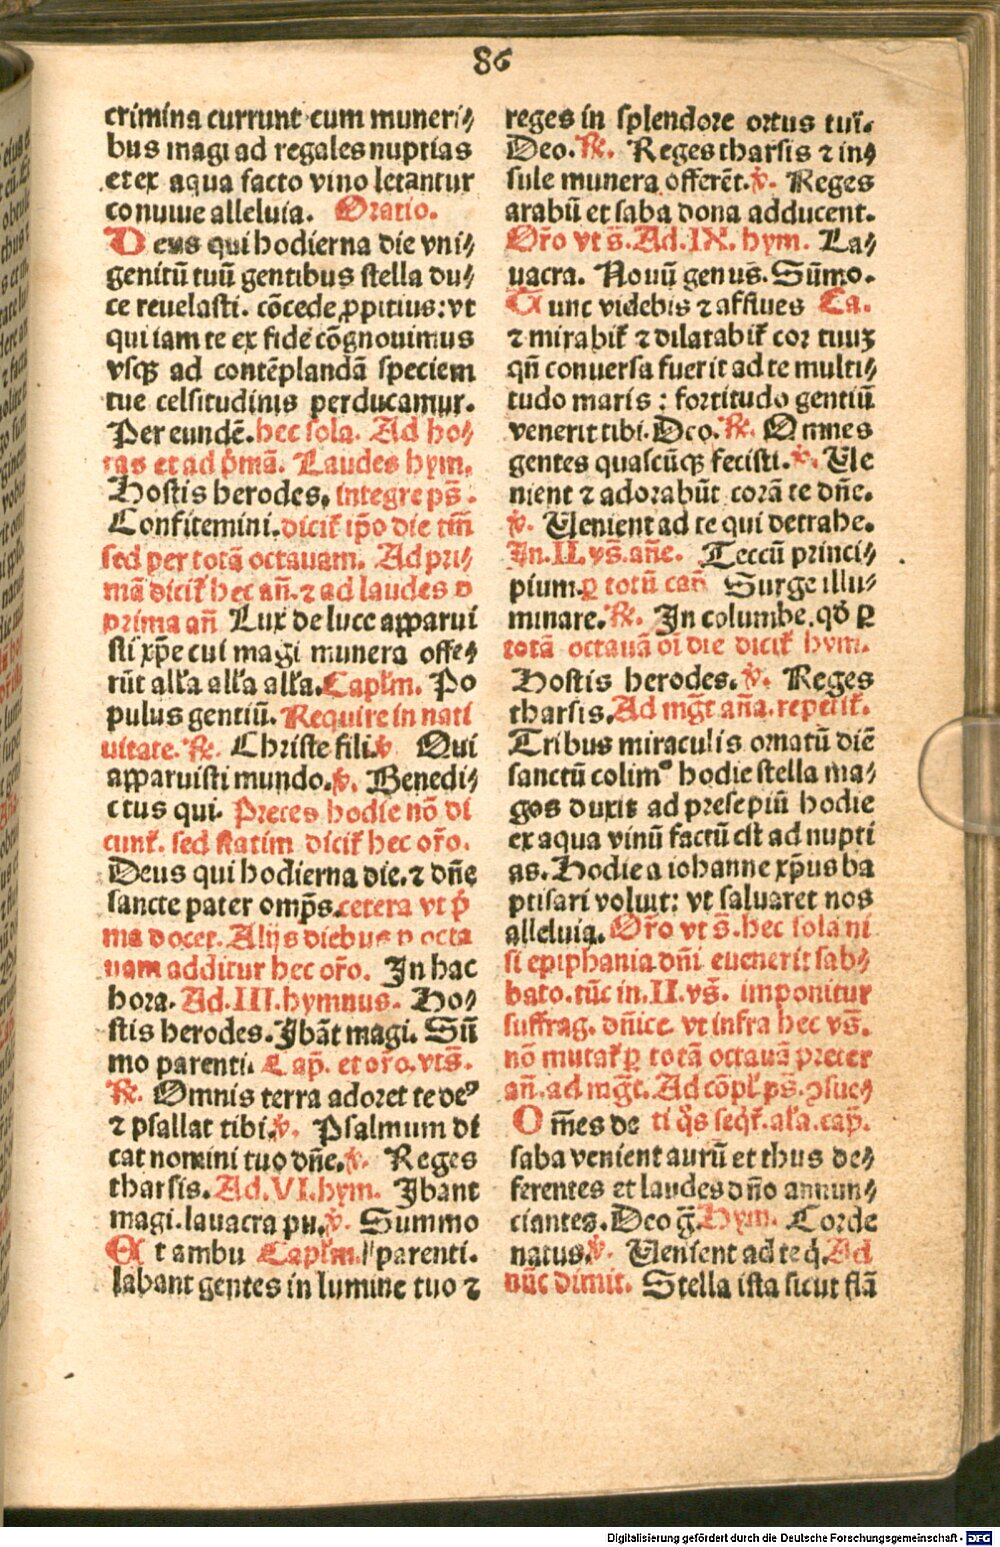 86
crimina currunt cum muneri⸗
bus magi ad regales nuptias
et ex aqua facto vino letantur
conuiue alleluia. Oratio.
Deus qui hodierna die vni⸗
genitū tuū gentibus stella du⸗
ce reuelasti. cōcede ꝓpitius: vt
qui iam te ex fide cōgnouimus
vsqꝫ ad contēplandā speciem
tue celsitudinis perducamur.
Per eundē. hec sola. Ad ho⸗
ras et ad p̄mā. Laudes hym.
Hostis herodes, integre ps̄.
Confitemini. dicit᷑ ip̄o die tm̄
sed per totā octauam. Ad pri⸗
mā dicit᷑ hec añ. ⁊ ad laudes ꝑ
prima añ Lux de luce apparui
sti xp̄e cui magi munera offe⸗
rūt all'a all'a all'a. Capl'm. Po
pulus gentiū. Require in nati
uitate. ℟. Christe fili. ℣ Qui
apparuisti mundo. ℣. Benedi⸗
ctus qui. Preces hodie nō di
cunt᷑. sed statim dicit᷑ hec or̄o.
Deus qui hodierna die. ⁊ dn̄e
sancte pater omp̄s. cetera vt p̄
ma docet. Alijs diebus ꝑ octa
uam additur hec or̄o. In hac
hora. Ad. III. hymnus. Ho⸗
stis herodes. Ibāt magi. Sū
mo parenti. Cap̄. et or̄o. vt s̄.
℟. Omnis terra adoret te deꝰ
⁊ psallat tibi. ℣. Psalmum di
cat nomini tuo dn̄e. ℣. Reges
tharsis. Ad. VI. hym. Ibant
magi. lauacra pu. ℣. Summo
Et ambu Capl'm. // parenti.
labant gentes in lumine tuo ⁊
reges in splendore ortus tui.
Deo. ℟. Reges tharsis ⁊ in⸗
sule munera offerēt. ℣. Reges
arabū et saba dona adducent.
Or̄o vt s̄. Ad. IX. hym. La⸗
uacra. Nouū genus. Sūmo.
Tunc videbis ⁊ afflues Ca.
⁊ mirabit᷑ ⁊ dilatabit᷑ cor tuuꝫ
qn̄ conuersa fuerit ad te multi⸗
tudo maris : fortitudo gentiū
venerit tibi. Deo. ℟. Omnes
gentes quascūqꝫ fecisti. ℣. Ue
nient ⁊ adorabūt corā te dn̄e.
℣. Uenient ad te qui detrahe.
In. II. vs̄. añe. Teccū princi⸗
pium. ꝑ totū cañ Surge illu⸗
minare. ℟. In columbe. qd̄ ꝑ
totā octauā oī die dicit᷑ hym.
Hostis herodes. ℣. Reges
tharsis. Ad mg̅t aña. repetit᷑.
Tribus miraculis ornatū diē
sanctū colimꝰ hodie stella ma⸗
gos duxit ad presepiū hodie
ex aqua vinū factū est ad nupti
as. Hodie a iohanne xp̄us ba
ptisari voluit: vt saluaret nos
alleluia. Or̄o vt s̄. hec sola ni
si epiphania dn̄i euenerit sab⸗
bato. tūc in. II. vs̄. imponitur
suffrag. dn̄ice. vt infra hec vs̄.
nō mutat᷑ ꝑ totā octauā preter
añ. ad mg̅t. Ad cōpl' ps̄. ꝯsue⸗
Om̄es de ti q̄s seqt᷑. al'a. cap̄.
saba venient aurū et thus de⸗
ferentes et laudes dn̄o annun⸗
ciantes. Deo g̅. Hym. Corde
natus. ℣. Uenient ad te q̄. Ad
nūc dimit. Stella ista sicut flā
Digitalisierung gefördert durch die Deutsche Forschungsgemeinschaft - DFG